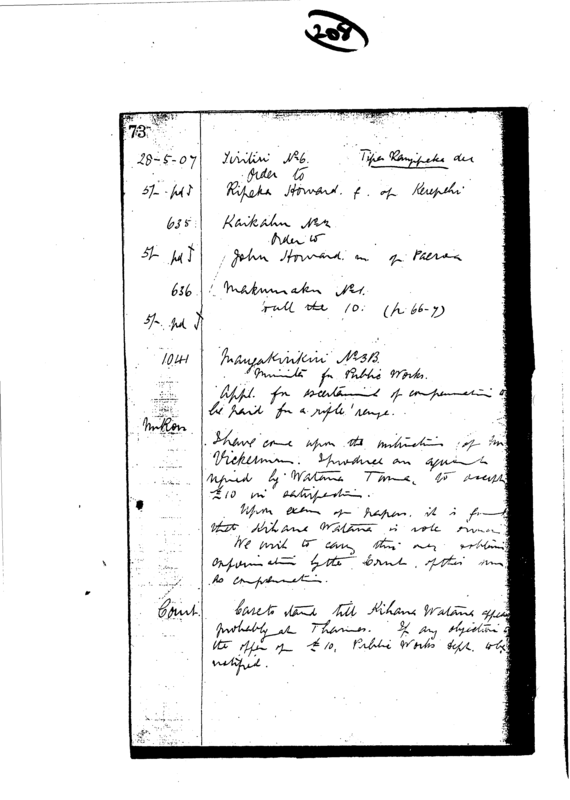 208
73
28-5-07 Tiritiri No 6. Tipa Rangipeka dec
Order to
5/- pd Ripeka Howard. f. of Kerepehi
635 Kaikahu No 2
Order to
5/- pd John Howard. m of Paeroa
636 Makumaku No 1.
call the 10. (p 66-7)
5/- pd
1041 Mangakirikiri No 3B.
Minister for Public Works.
Appl. for ascertainment of compensation
be paid for a rifle range.
I have come upon the instruction of
Vickerman. I produce an
signed by Watana to accept
£10 in satisfaction.
Upon exam of papers. it is
that Kihana Watana is sole owner
We wish to carry this
by the Court. of this
as compensation.
Court. Case to stand till Kihana Watana
probably at Thames. If any objection
the offer of £10, Public Works Dept. to be
notified.